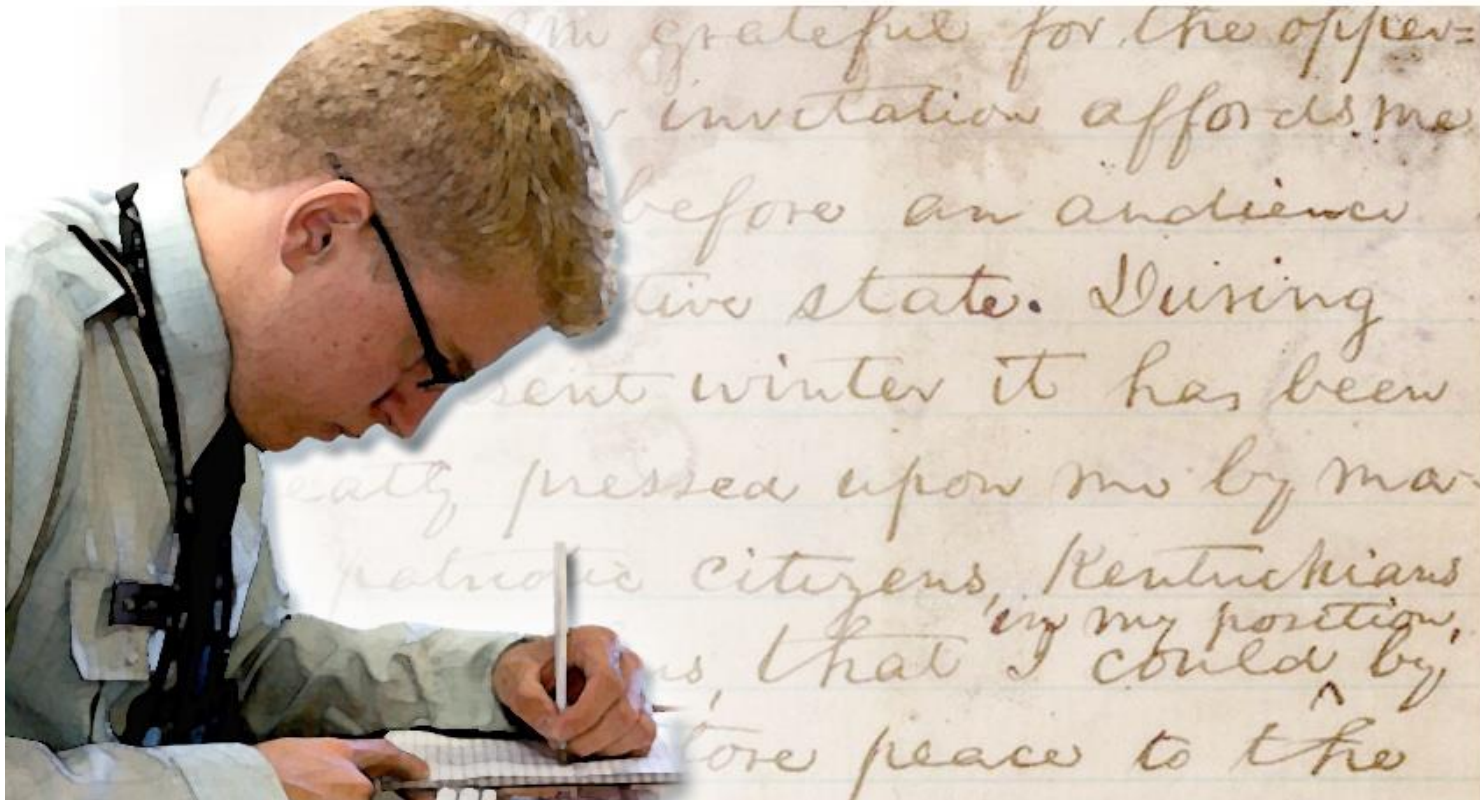 grateful for the opper=
invitation affords me
before an audience
tive state. During
sent winter it has been
eatly pressed upon me by ma-
patriotic citizens, Kentuckians
in my position,
us, that I could by
^
tore peace to the